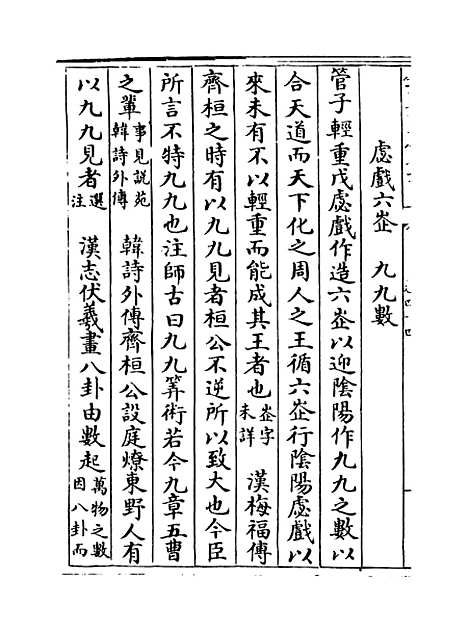 虙戲六峜　九九數
管子輕重戊虙戲作造六峜以迎陰陽作九九之數以
合天道而天下化之周人之王循六峜行陰陽虙戲以
來未有不以輕重而能成其王者也峜字未詳　漢梅福傳
齊桓之時有以九九見者桓公不逆所以致大也今臣
所言不特九九也注師古曰九九筭術若今九章五曹
之軰事見說苑韓詩外傳　韓詩外傳齊桓公設庭燎東野人有
以九九見者選注　漢志伏羲畫八卦由數起萬物之數因八卦而